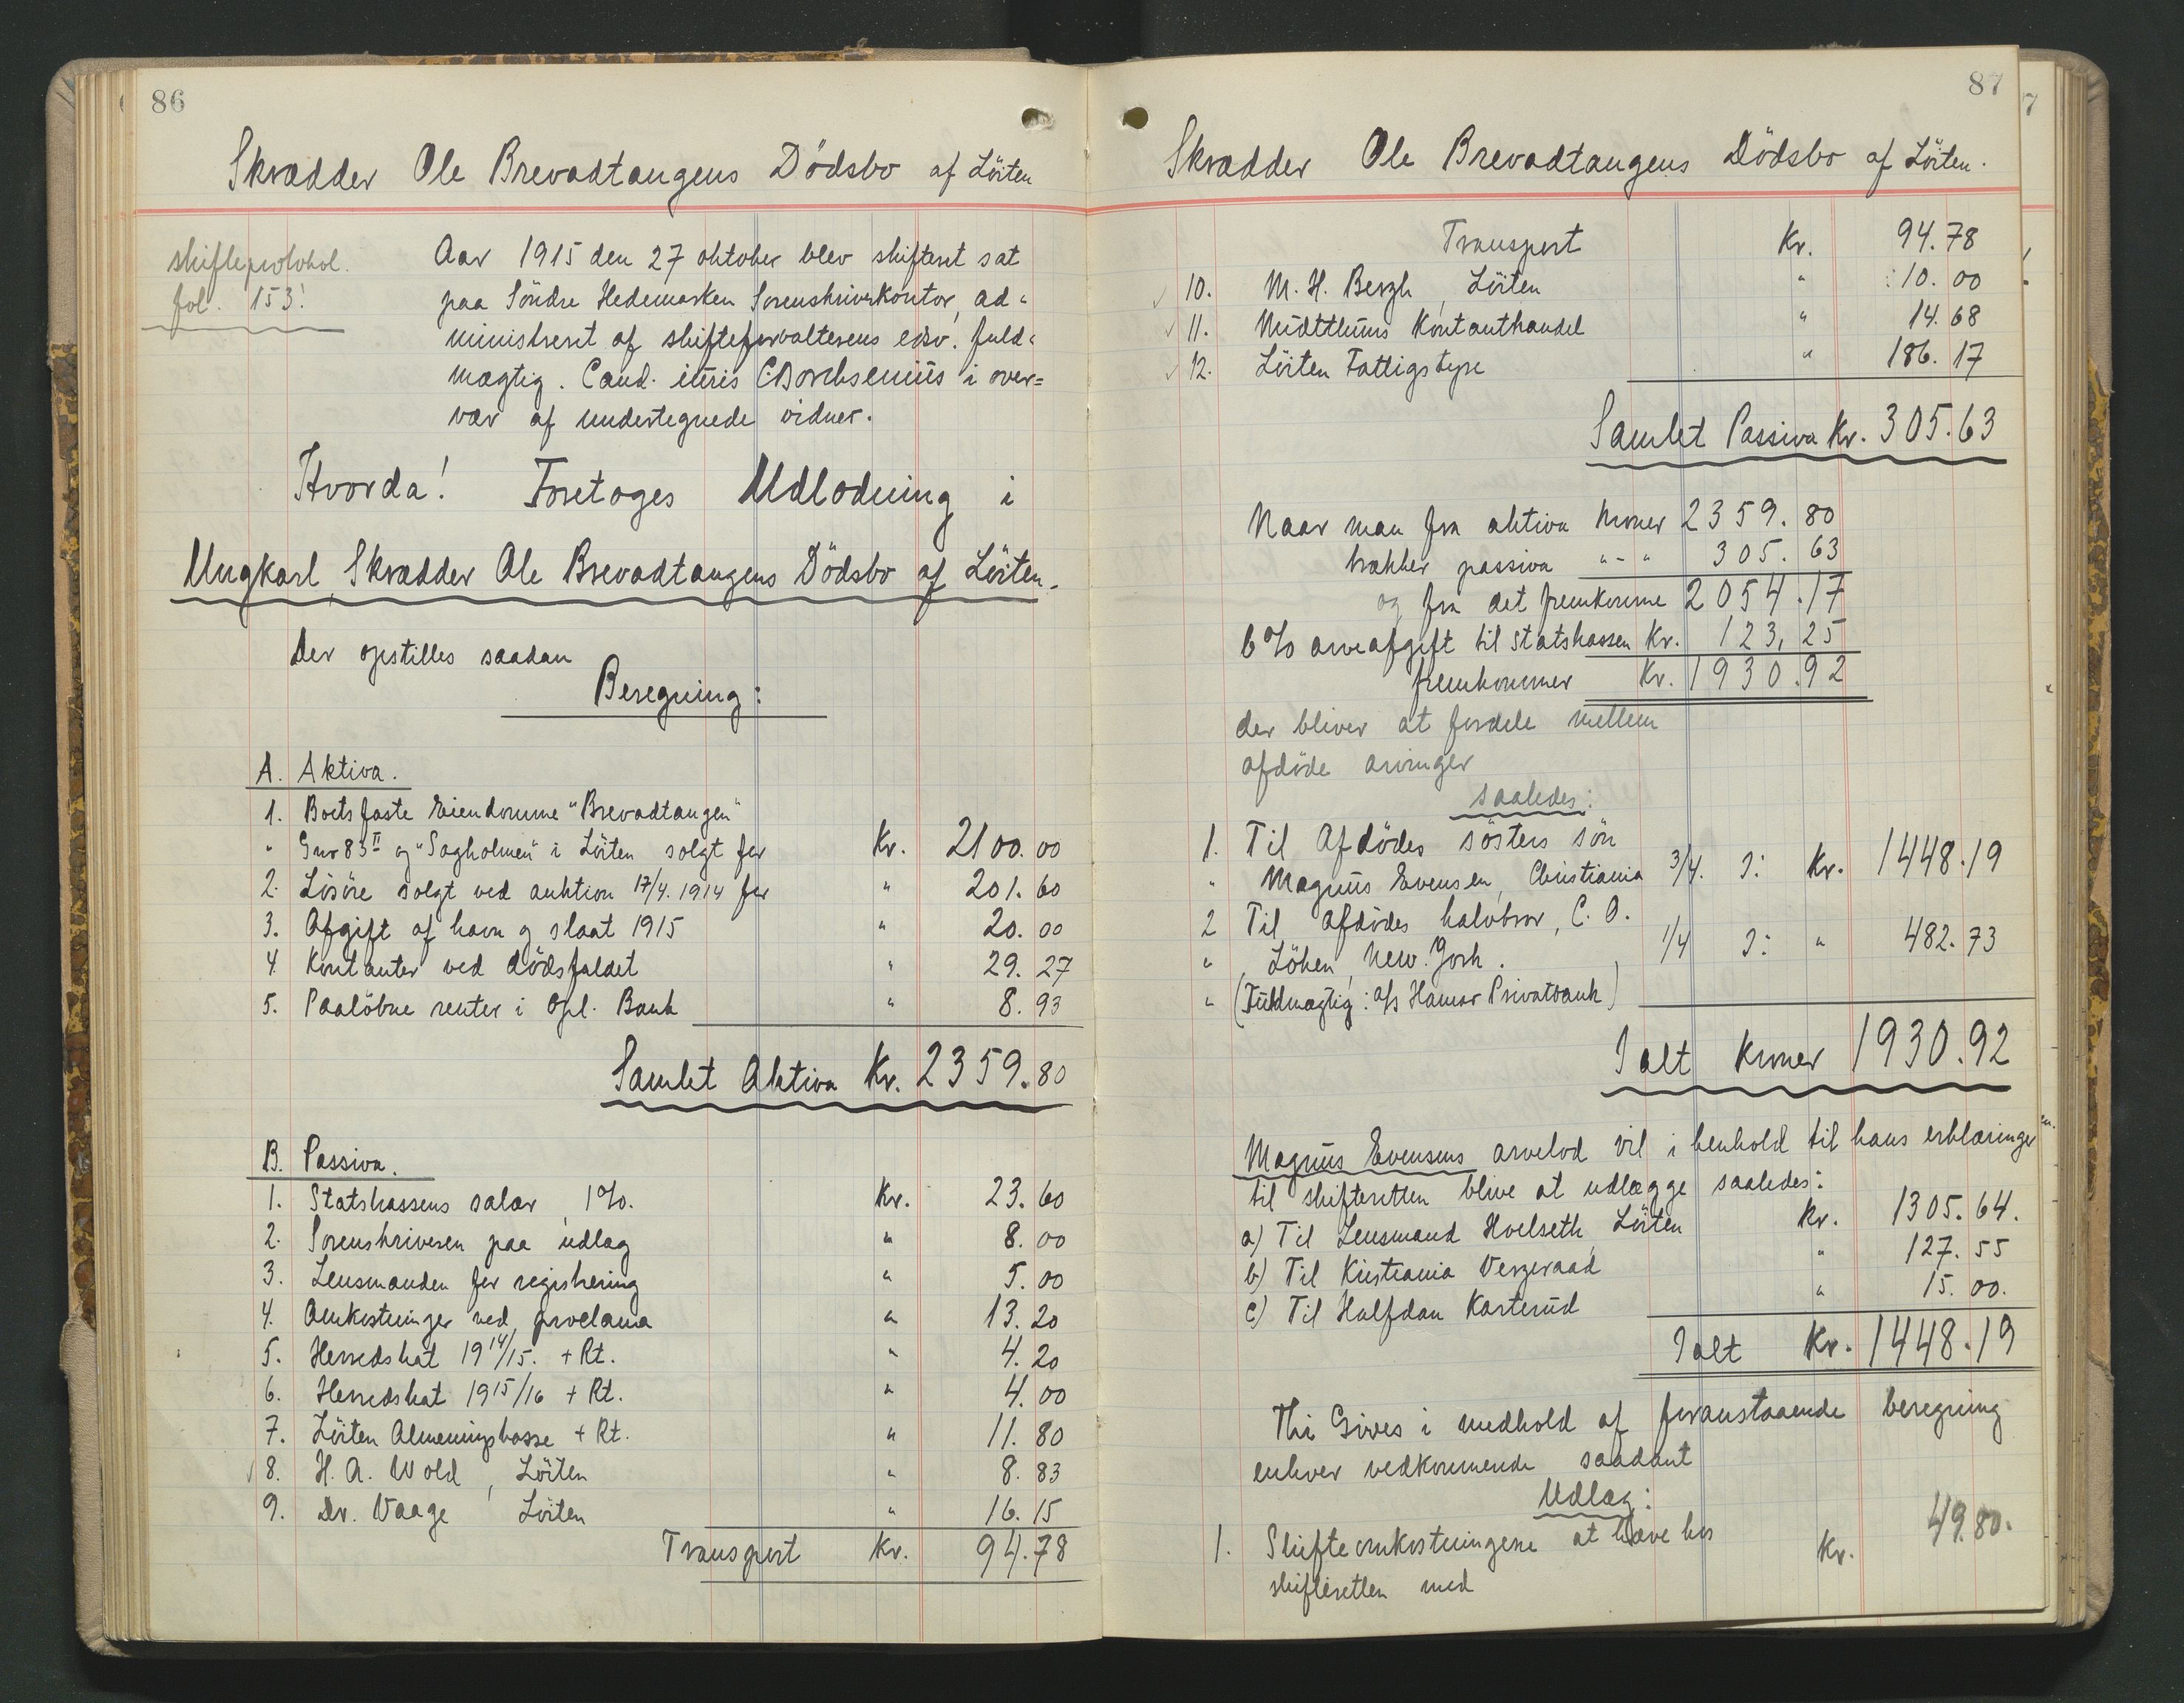 86
Skrædder Ole Brevadtangens Dödsbo af Löiten
skifteprotokol.
fol. 153!
Aar 1915 den 27 oktober blev skifteret sat
paa Söndre Hedemarken Sorenskriverkontor, ad-
ministreret af skifteforvalterens edsv. fuld-
mægtig. Cand. iuris C Borchsenius i over=
vær af undertegnede vidner.
Hvorda! Foretoges Udlodning i
Ungkarl, Skrædder Ole Brevadtangens Dödsbo af Löiten.
Der opstilles saadan
Beregning:
A. Aktiva.
1. Boets faste Eiendomme "Brevadtangen"
" Gnr 83 II og "Sagholmen" i Löiten solgt for Kr. 2100.00
2. Lösöre solgt ved auktion 17/4. 1914 for " 201.60
3. Afgift af havn og slaat 1915 " 20.00
4. Kontanter ved dödsfaldet " 29.27
5. Paalöbne renter i Opl. Bank " 8.93
Samlet Aktiva Kr. 2359.80
B. Passiva.
1. Statskassens salær, 1%. Kr. 23.60
2. Sorenskriveren paa udlag " 8.00
3. Lensmanden for registrering " 5.00
4. Omkostninger ved proclama " 13.20
5. Herredskat 1914/15. + Rt. " 4.20
6. Herredskat 1915/16 + Rt. " 4.00
7. Löiten Almenningskasse + Rt. " 11.80
8. H. A. Wold, Löiten " 8.83
9. Dr. Vaage, Löiten " 16.15
Transport Kr. 94.78
87
Skrædder Ole Brevadtangens Dödsbo af Löiten.
Transport Kr. 94.78
10. M. H. Bergh, Löiten " 10.00
11. Midttuns Kontanthandel " 14.68
12. Löiten Fattigstyre " 186.17
Samlet Passiva Kr. 305.63
Naar man fra aktiva kroner 2359.80
trækker passiva "-" 305.63
og fra det fremkomne 2054.17
6% arveafgift til Statskassen Kr. 123,25
fremkommer Kr. 1930.92
der bliver at fordele mellem
afdöde arvinger
saaledes:
1. Til Afdödes sösters sön
" Magnus Evensen, Christiania 3/4. ɔ: Kr. 1448.19
2 Til afdödes halvbror, C. O.
" Löken, New. York. 1/4 ɔ: " 482.73
" (Fuldmægtig: a/s Hamar Privatbank)
Ialt kroner 1930.92
Magnus Evensens arvelod vil i henhold til hans erklæringer
til skifteretten blive at udlægge saaledes:
a) Til Lensmand Hoelseth, Löiten Kr. 1305.64.
b) Til Kristiania Vergeraad " 127.55
c) Til Halfdan Karterud " 15.00.
Ialt Kr. 1448.19
Thi Gives i medhold af foranstaaende beregning
enhver vedkommende saadant
Udlæg:
1. Skifteomkostningerne at hæve hos Kr. 49.80.
skifteretten med